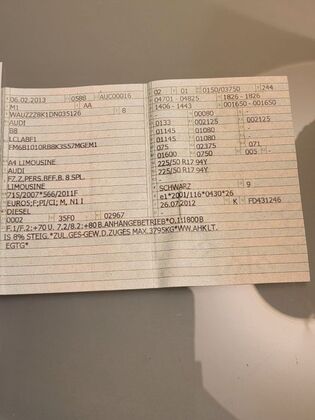 06.02.2013 0588 AUC00016
M1 AA
WAUZZZ8K1DN035126 8
AUDI
B8
LCLABF1
FM6B1010RBBK3S57MGEM1
-
A4 LIMOUSINE
AUDI
FZ.Z.PERS.BEF.B. 8 SPL.
LIMOUSINE
715/2007*566/2011F
EURO5;F;PI/CI; M, N1 I
DIESEL
0002 35F0 02967
02 01 0150/03750 244
04701 - 04825 1826 - 1826
1406 - 1443 001650 - 001650
- 00080 - -
0133 002125 002125
01145 01080 -
01145 01080 -
075 02375 071
01600 0750 005 -
225/50 R17 94Y
225/50 R17 94Y
-
SCHWARZ 9
e1*2001/116*0430*26
26.07.2012 K FD431246
F.1/F.2:+70 U. 7.2/8.2:+80 B.ANHÄNGEBETRIEB*O.1:1800B
IS 8% STEIG.*ZUL.GES-GEW.D.ZUGES MAX.3795KG*WW.AHK LT.
EGTG*